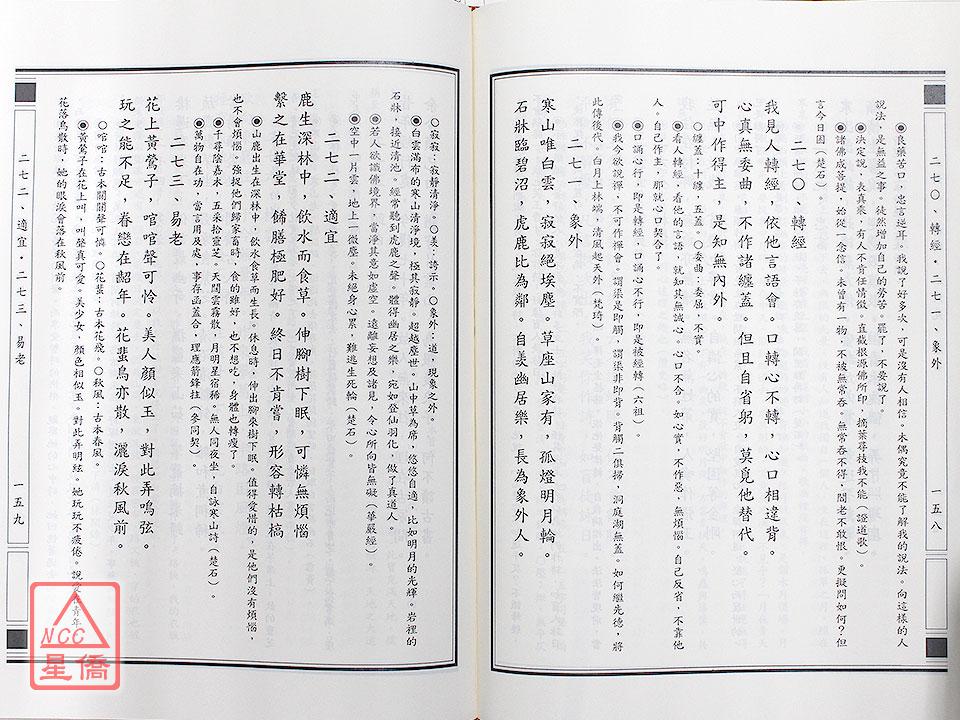 二七〇、轉經・二七一、象外
一五八
◉良藥苦口，忠言逆耳。我說了好多次，可是沒有人相信。木偶究竟不能了解我的說法。向這樣的人
說法，是無益之事。徒然增加自己的勞苦。罷了，不要說了。
◉決定說，表真乘，有人不肯任情徵。直截根源佛所印，摘葉尋枝我不能（證道歌）。
◉諸佛成菩提，始從一念信。未曾有一物，不被無常吞。無常吞不得，閻老不敢恨。更擬問如何？但
言今日困（楚石）。
二七〇、轉經
我見人轉經，依他言語會。口轉心不轉，心口相違背。
心真無委曲，不作諸纏蓋。但且自省躬，莫覓他替代。
可中作得主，是知無內外。
〇纏蓋：十纏，五蓋。〇委曲：委屈，不實。
◉看人轉經，看他的言語，就知其無誠心。心口不合。如心實，不作惡，無煩惱。自己反省，不靠他
人。自己作主，那就心口契合了。
◉口誦心行，即是轉經，口誦心不行，即是被經轉（六祖）。
◉我今欲說禪，不可作禪會。謂渠是即觸，謂渠非即背。背觸二俱掃，洞庭湖無蓋。如何繼先德，將
此傳後代。白月上林端，清風起天外（梵琦）。
二七一、象外
寒山唯白雲，寂寂絕埃塵。草座山家有，孤燈明月輪。
石牀臨碧沼，虎鹿比為鄰。自羨幽居樂，長為象外人。
〇寂寂：寂靜清淨。〇美：誇示。〇象外：道，現象之外。
◉白雲滿布的寒山清淨境，極其寂靜。超越塵世。山中草為席，悠悠自適，比如明月的光輝。岩裡的
石牀，接近清池。經常聽到虎鹿之聲。體得幽居之樂，宛如登仙羽化，做了真道人。
◉若人欲識佛境界，當淨其意如虛空。遠離妄想及諸見，令心所向皆無礙（華嚴經）。
◉空中一片雲，地上一微塵。未絕身心累，難逃生死輪（楚石）。
二七二、適宜
鹿生深林中，飲水而食草。伸腳樹下眠，可憐無煩惱
繫之在華堂，餚膳極肥好。終日不肯嘗，形容轉枯槁
◉山鹿出生在深林中，飲水食草而生長。休息時，伸出腳來樹下眠。值得愛惜的，是他們沒有煩惱，
也不會煩惱。強捉他們歸家畜時，食的雖好，也不想吃，身體也轉瘦了。
◉千尋陰嘉木，五采拾靈芝。天闊雲霧散，月明星宿稀。無人同夜坐，自詠寒山詩（楚石）。
◉萬物自在功，當言用及處。事存函蓋合，理應箭鋒拄（參同契）。
二七三、易老
花上黃鶯子，喧喧聲可怜。美人顏似玉，對此弄鳴弦。
玩之能不足，眷戀在齠年。花蜚鳥亦散，灑淚秋風前。
〇喧喧：古本關關聲可憐。〇花蜚：古本花飛。〇秋風：古本春風。
◉黃鶯子在花上叫，叫聲真可愛。美少女，顏色相似玉。對此弄明絃。她玩玩不疲倦。說愛在青年
花落鳥散時，她的眼淚會落在秋風前。
二七二、適宜・二七三、易老
一五九
NCC
星僑